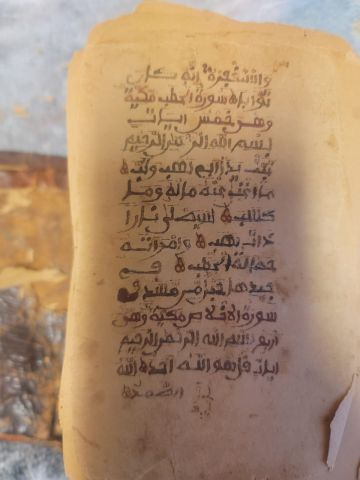 واستغفره إنه كان
توابا سورة الحطب مكية
وهي خمس ايات
بسم الله الرحمن الرحيم
تبت يدا ابي لهب وتب
ما اغنى عنه ماله وما
كسب سيصلى نارا
ذات لهب وامراته
حمالة الحطب في
جيدها حبل من مسد
سورة الاخلاص مكية وهي
اربع بسم الله الرحمن الرحيم
ايات قل هو الله احد الله
الصمد